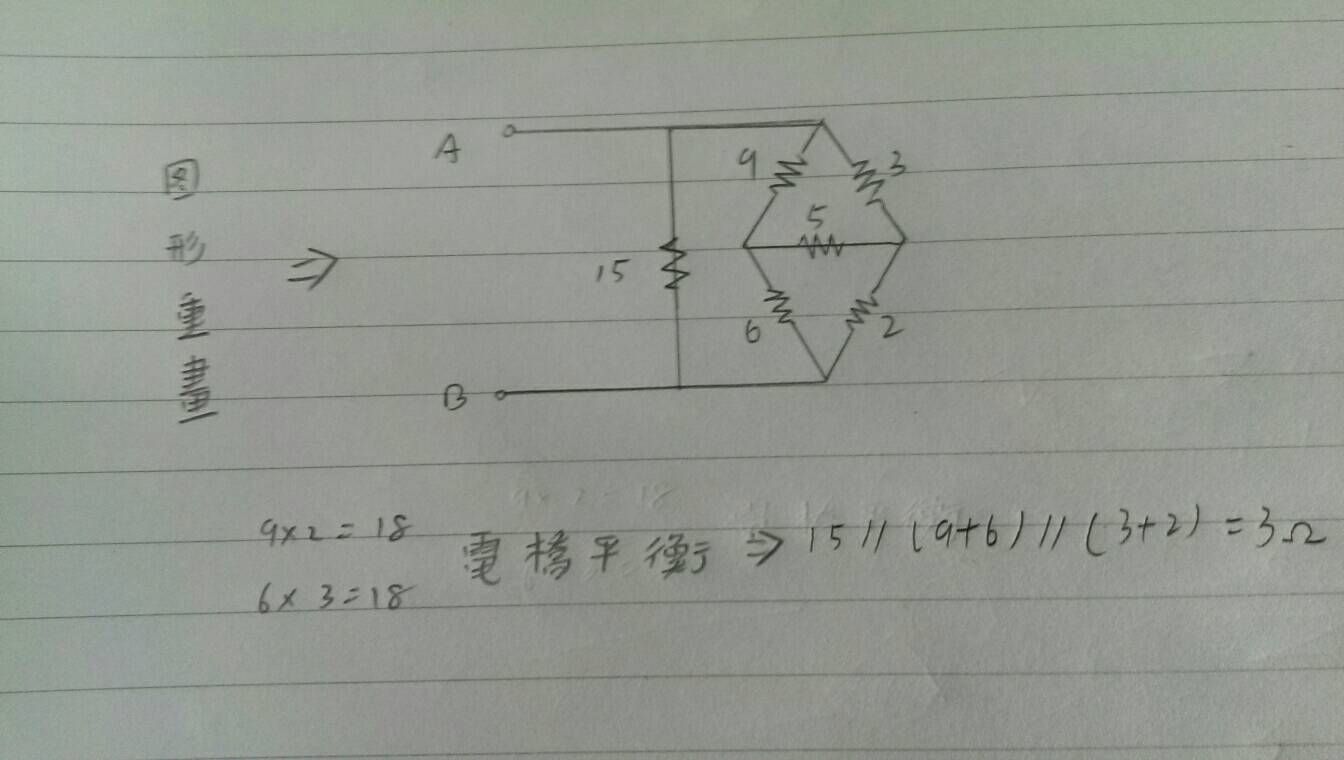 圖形重畫 ⇒
A
9
3
5
15
6
2
B
9×2=18
6×3=18
電橋平衡 ⇒ 15//(9+6)//(3+2)=3Ω